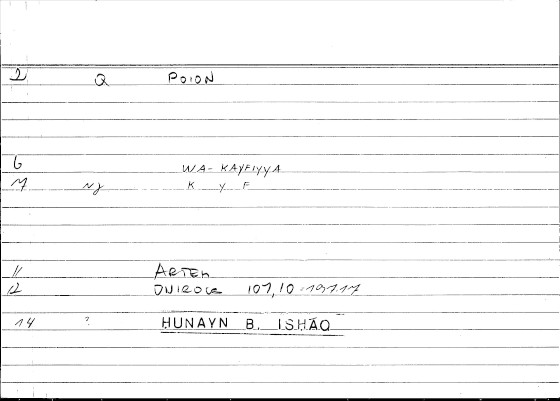 2 Q POION
6 WA- KAYFIYYA
M Nf K Y F
11 ARTEM
12 ONIROCR 107,10
14 ? HUNAYN B. ISHĀQ